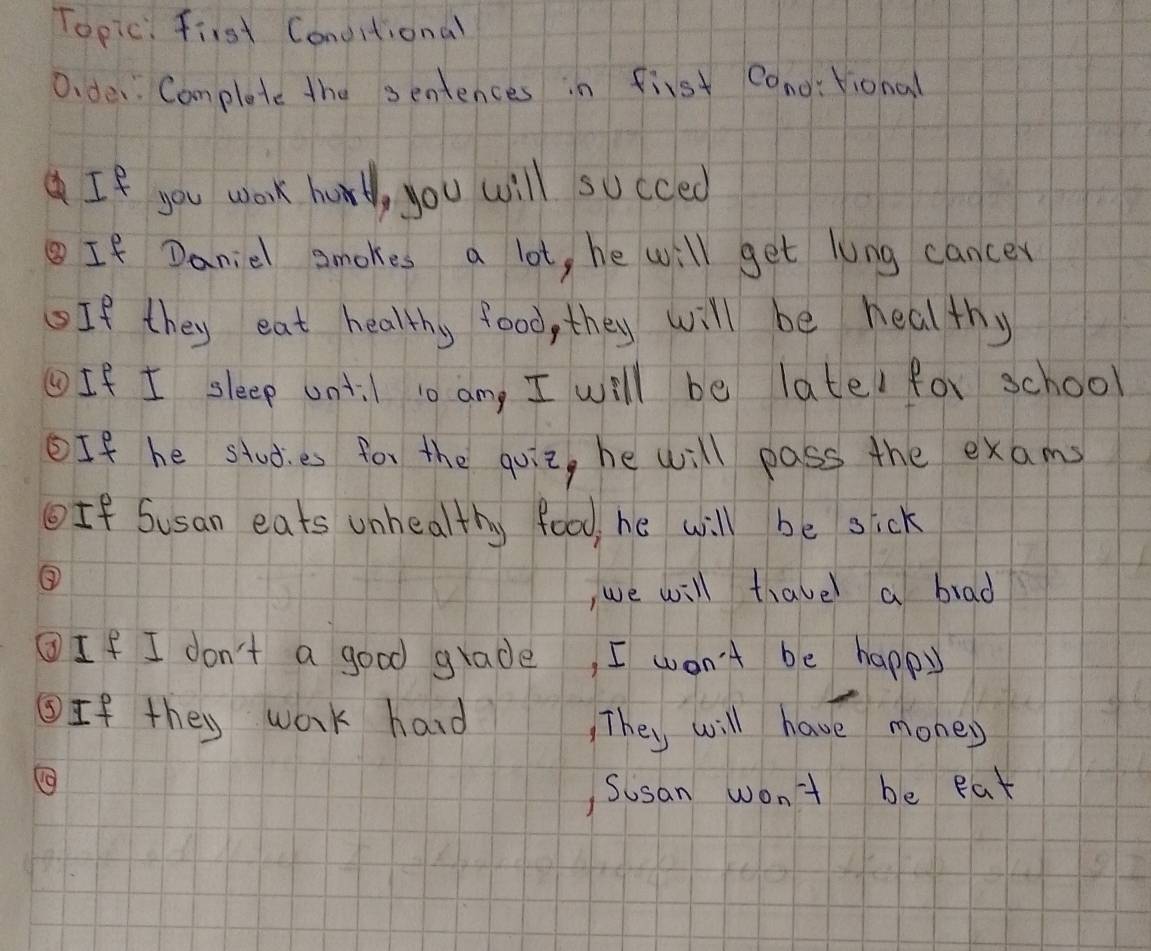 Topic: First Conditional
Order: Complete the sentences in first Conditional
① If you work hurd, you will succed
② If Daniel smokes a lot, he will get lung cancer
③ If they eat healthy food, they will be healthy
④ If I sleep until 10 am, I will be late for school
⑤ If he studies for the quiz, he will pass the exams
⑥ If Susan eats unhealthy food, he will be sick
⑦ , we will travel a brad
⑧ If I don't a good grade , I won't be happy
⑨ If they work hard , They will have money
⑩ , Susan won't be eat